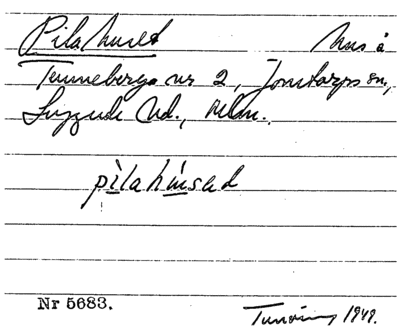 Pilahuset hus å
Tunneberga nr 2, Jonstorps sn,
Luggude hd., Mlm.
pilahu̇sad
Nr 5683.
1949.